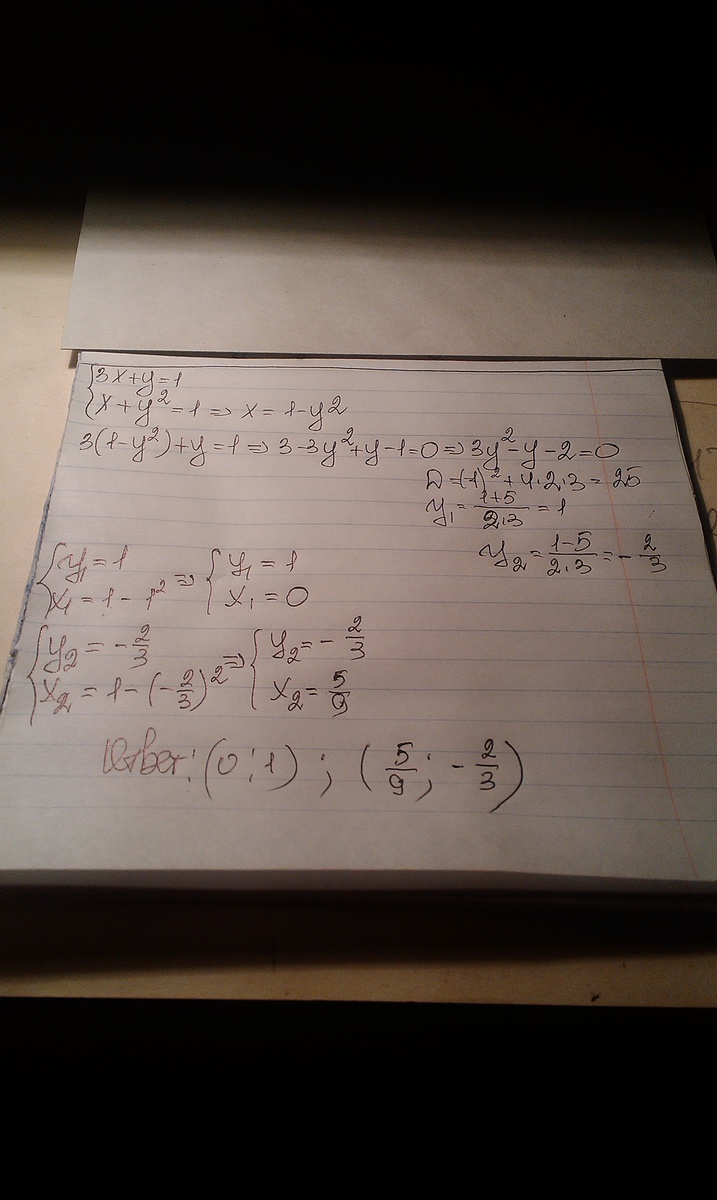 {3x+y=1
{x+y²=1 ⇒ x=1-y²
3(1-y²)+y=1 ⇒ 3-3y²+y-1=0 ⇒ 3y²-y-2=0
D=(-1)²+4·2·3=25
y₁=(1+5)/(2·3)=1
y₂=(1-5)/(2·3)=-2/3
{y₁=1 ⇒ {y₁=1
{x₁=1-1² {x₁=0
{y₂=-2/3 ⇒ {y₂=-2/3
{x₂=1-(-2/3)² {x₂=5/9
Ответ: (0;1); (5/9; -2/3)